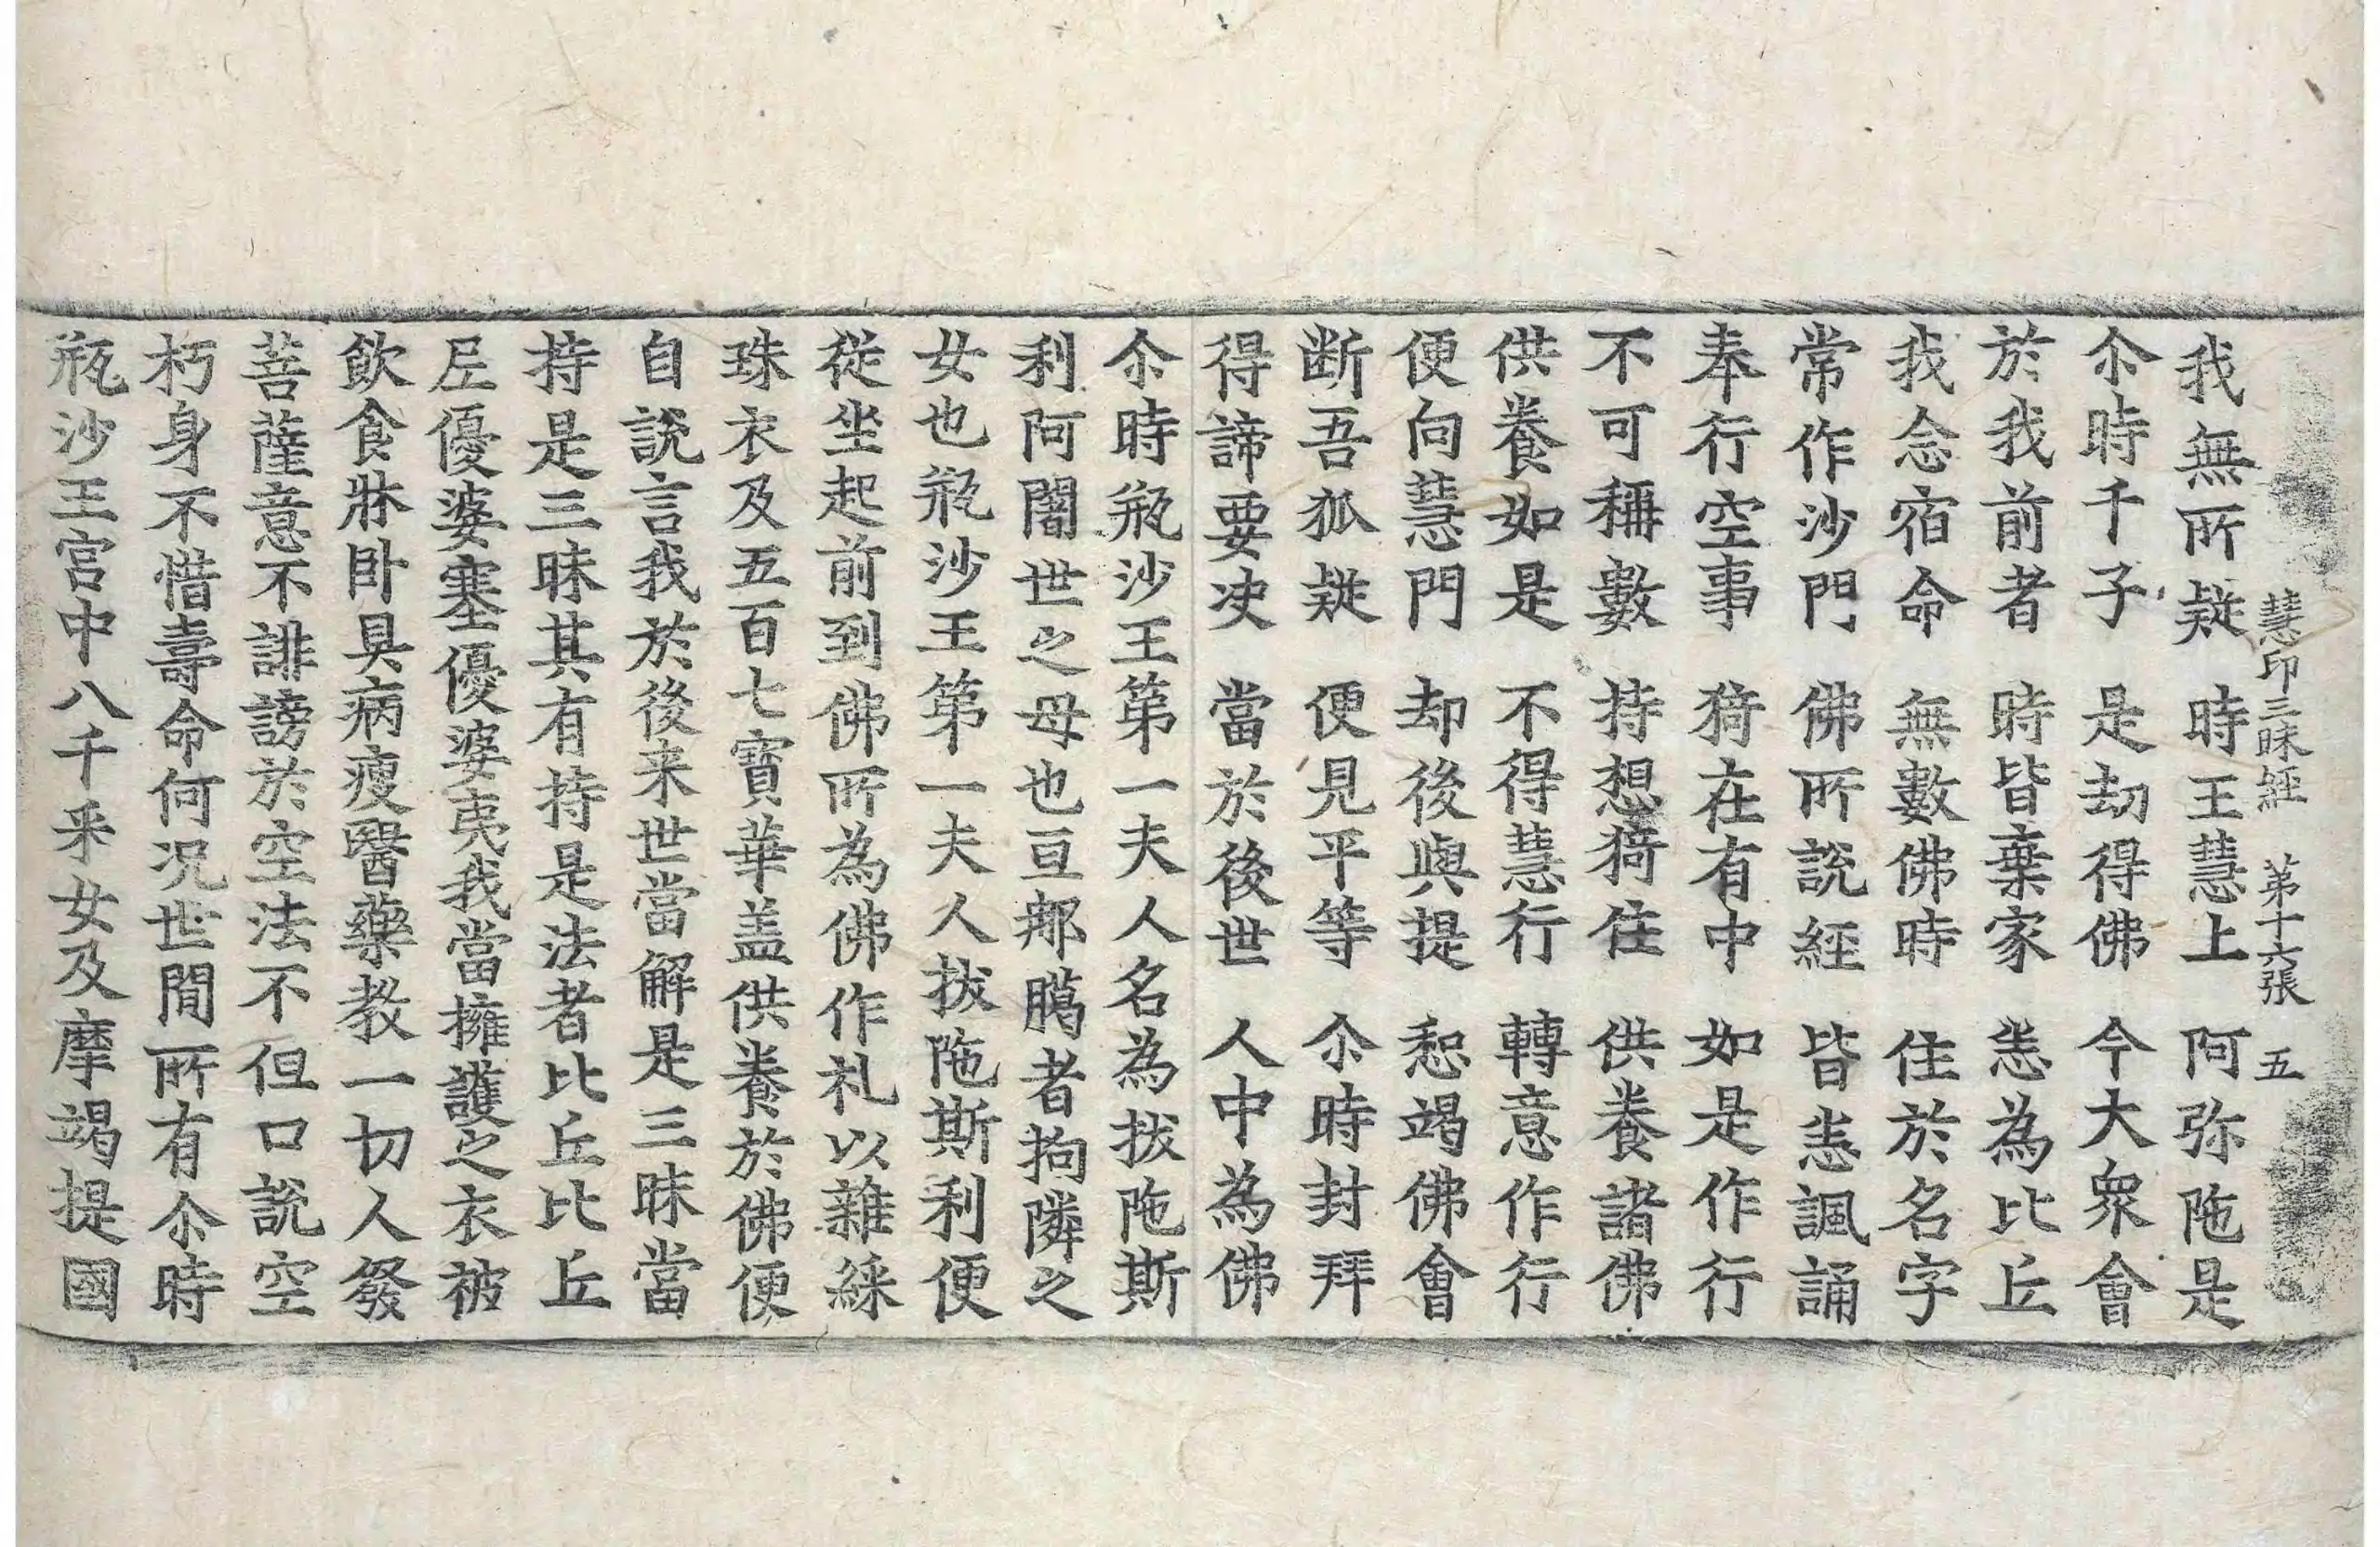 慧印三昧経　第十六張　五
我無所疑　時王慧上　阿弥陁是
尒時千子　是劫得佛　今大衆會
於我前者　時皆棄家　恙為比丘
我念宿命　無數佛時　住於名字
常作沙門　佛所說經　皆恙諷誦
奉行空事　猗在有中　如是作行
不可稱數　持想猗住　供養諸佛
供養如是　不得慧行　轉意作行
便向慧門　却後與提　惒竭佛會
断吾狐疑　便見平等　尒時封拜
得諦要决　當於後世　人中為佛
尒時瓶沙王苐一夫人名為拔陁斯
利阿闍世之母也亘郍臈者拘隣之
女也瓶沙王苐一夫人拔陁斯利便
從坐起前到佛所為佛作礼以雜綵
珠衣及五百七寶華盖供養於佛便
自說言我於後来世當解是三昧當
持是三昧其有持是法者比丘比丘
尼優婆塞優婆夷我當擁護之衣被
飲食牀卧具病瘦醫藥教一切人發
菩薩意不誹謗於空法不但口說空
朽身不惜壽命何况世間所有尒時
瓶沙王宫中八千釆女及摩竭提國